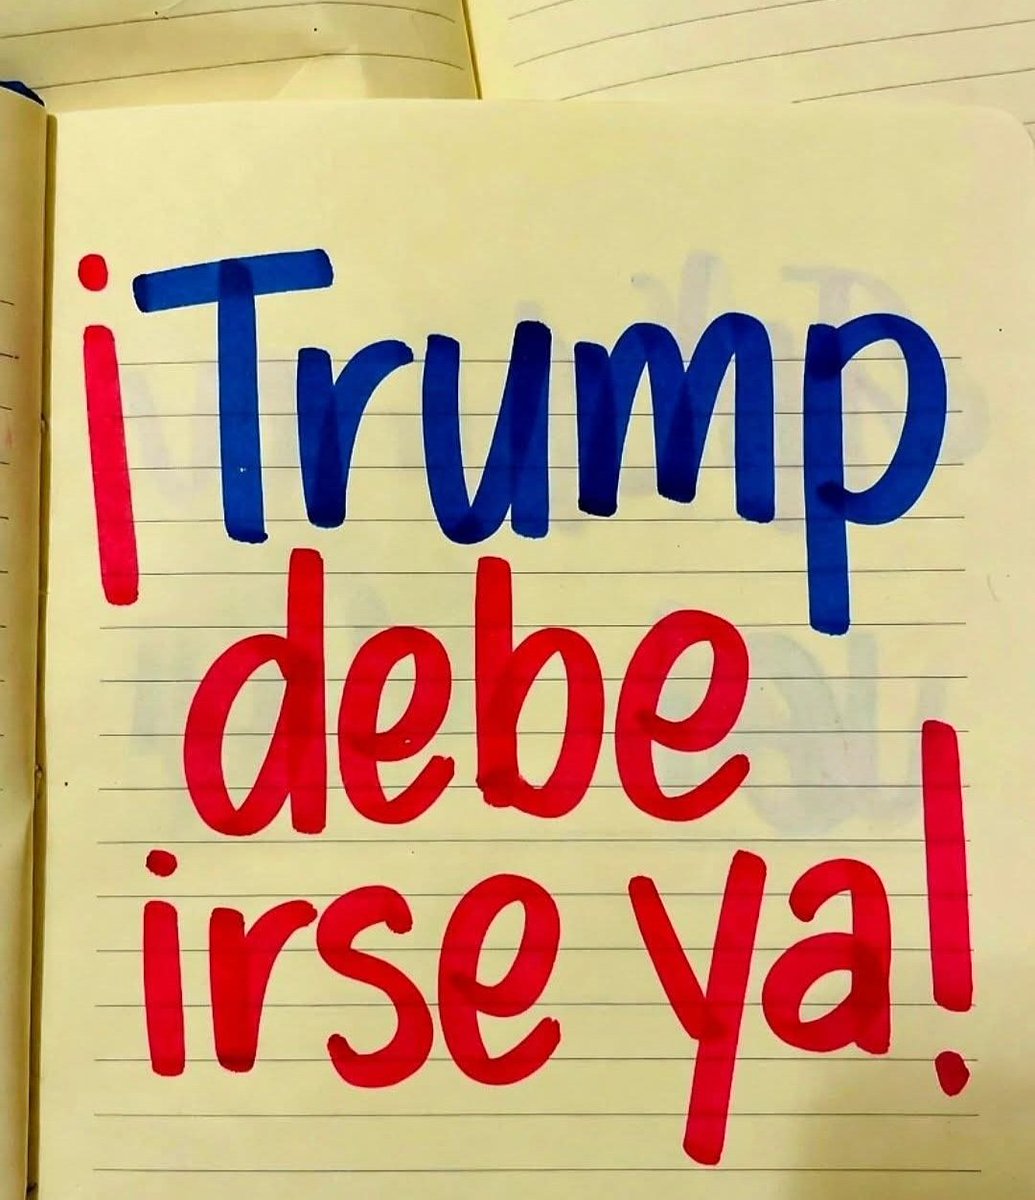 ¡Trump
debe
irse ya!